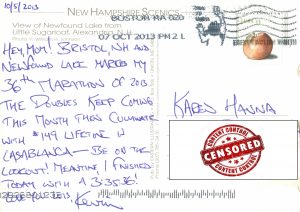 10/5/2013
NEW HAMPSHIRE SCENICS
View of Newfound Lake from
Little Sugarloaf, Alexandria, N.H.
BOSTON MA 020
07 OCT 2013 PM 2 L
HEY MOM! BRISTOL, NH AND
NEWFOUND LAKE MARKED MY
36TH MARATHON OF 2013.
THE DOUBLES KEEP COMING
THIS MONTH THEN CULMINATE
WITH #149 LIFETIME IN
CASABLANCA – BE ON THE
LOOKOUT! MEANTIME I FINISHED
TODAY WITH A 3:35:36!
LOVE YOU,
Kevin
KAREN HANNA
CONTENT CONTROL
CENSORED
CONTENT CONTROL